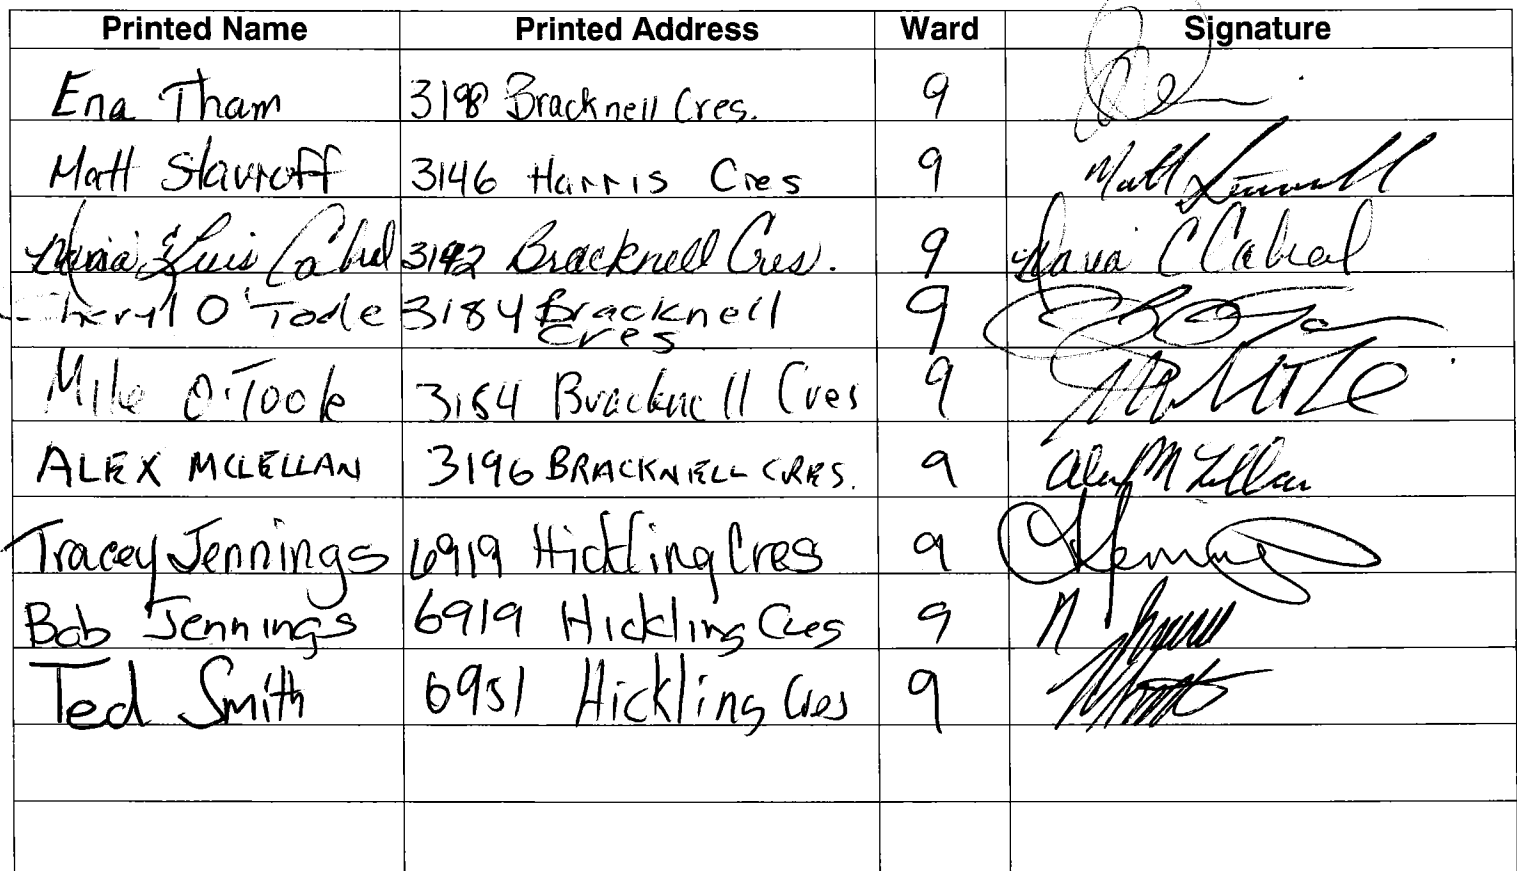 Printed Name Printed Address Ward Signature
Ena Tham 3198 Bracknell Cres. 9
Matt Stavroff 3146 Harris Cres 9 Matt
Maria & Luis Cabral 3192 Bracknell Cres. 9 Maria C Cabral
Cheryl O'Toole 3184 Bracknell 9
Cres
Mike O'Toole 3184 Bracknell Cres 9
ALEX MCLELLAN 3196 BRACKNELL CRES. 9 Alex McLellan
Tracey Jennings 6919 Hickling Cres 9
Bob Jennings 6919 Hickling Cres 9
Ted Smith 6951 Hickling Cres 9